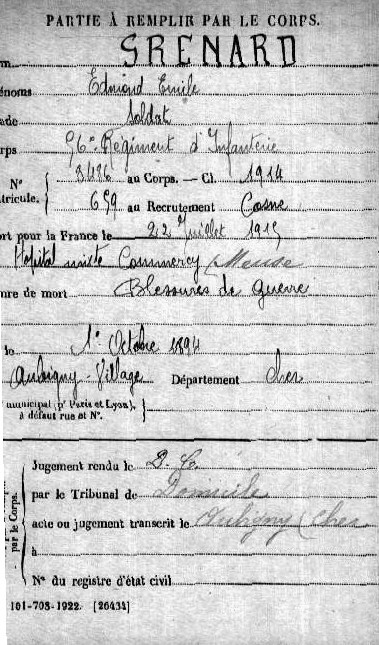 PARTIE À REMPLIR PAR LE CORPS.
m GRENARD
énoms Edmond Emile
ade Soldat
rps 56e Régiment d'Infanterie
N° 8486 au Corps. — Cl. 1914
atricule. 659 au Recrutement Cosne
ort pour la France le 22 Juillet 1915
Hôpital mixte Commercy (Meuse
nre de mort Blessures de Guerre
le 1er Octobre 1894
Aubigny-Village Département Cher
municipal (pr Paris et Lyon),
à défaut rue et N°.
par le Corps.
Jugement rendu le D. C.
par le Tribunal de Domicile
acte ou jugement transcrit le Aubigny (Cher
à
N° du registre d'état civil
101-708-1922. [26434]